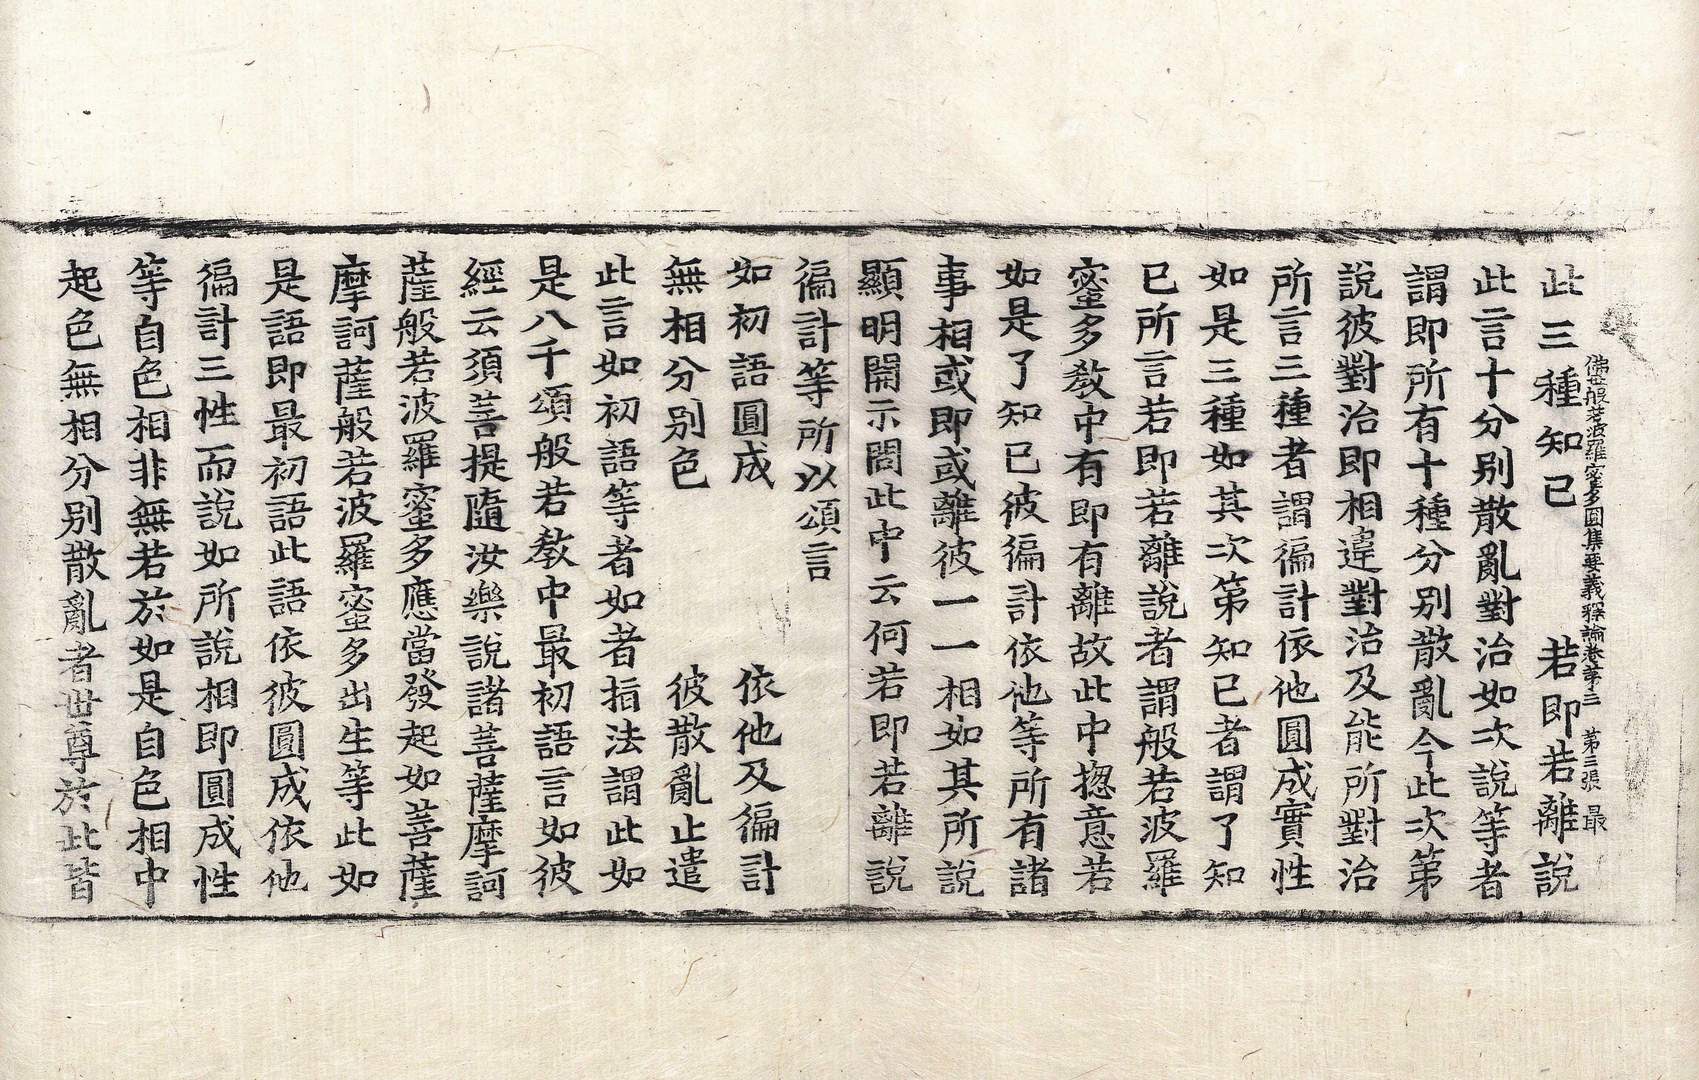 佛母般若波羅蜜多圓集要義釋論卷第三　第三張　最
此三種知已　若即若離說
此言十分別散亂對治如次說等者
謂即所有十種分別散亂今此次第
說彼對治即相違對治及能所對治
所言三種者謂徧計依他圓成實性
如是三種如其次第知已者謂了知
已所言若即若離說者謂般若波羅
蜜多教中有即有離故此中揔意若
如是了知已彼徧計依他等所有諸
事相或即或離彼一一相如其所說
顯明開示問此中云何若即若離說
徧計等所以頌言
如初語圓成　依他及徧計
無相分別色　彼散亂止遣
此言如初語等者如者指法謂此如
是八千頌般若教中最初語言如彼
經云須菩提隨汝樂說諸菩薩摩訶
薩般若波羅蜜多應當發起如菩薩
摩訶薩般若波羅蜜多出生等此如
是語即最初語此語依彼圓成依他
徧計三性而說如所說相即圓成性
等自色相非無若於如是自色相中
起色無相分別散亂者世尊於此皆